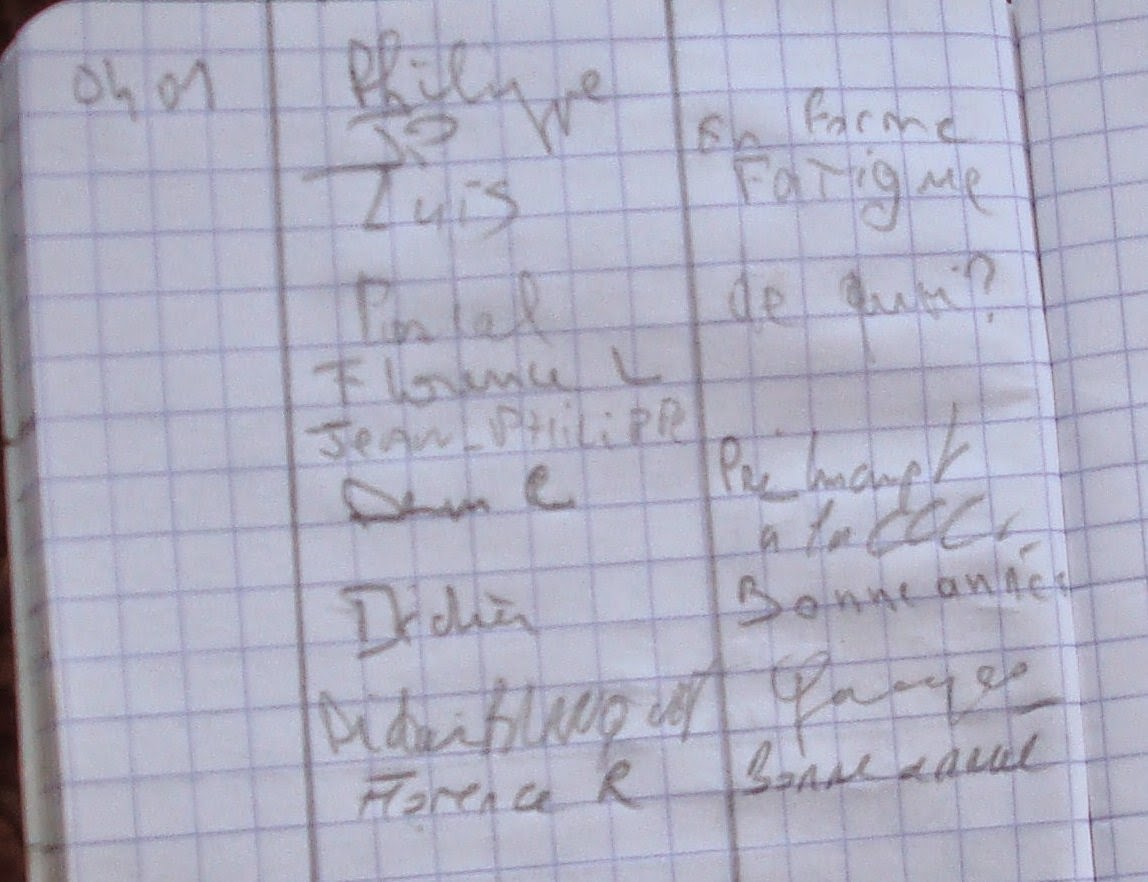 04 01 Philippe
JP En forme
Luis Fatigue
Pascal de quoi?
Florence L
Jean-Philippe
C
à la CCC
Didier Bonne année
Didier
Florence R Bonne année